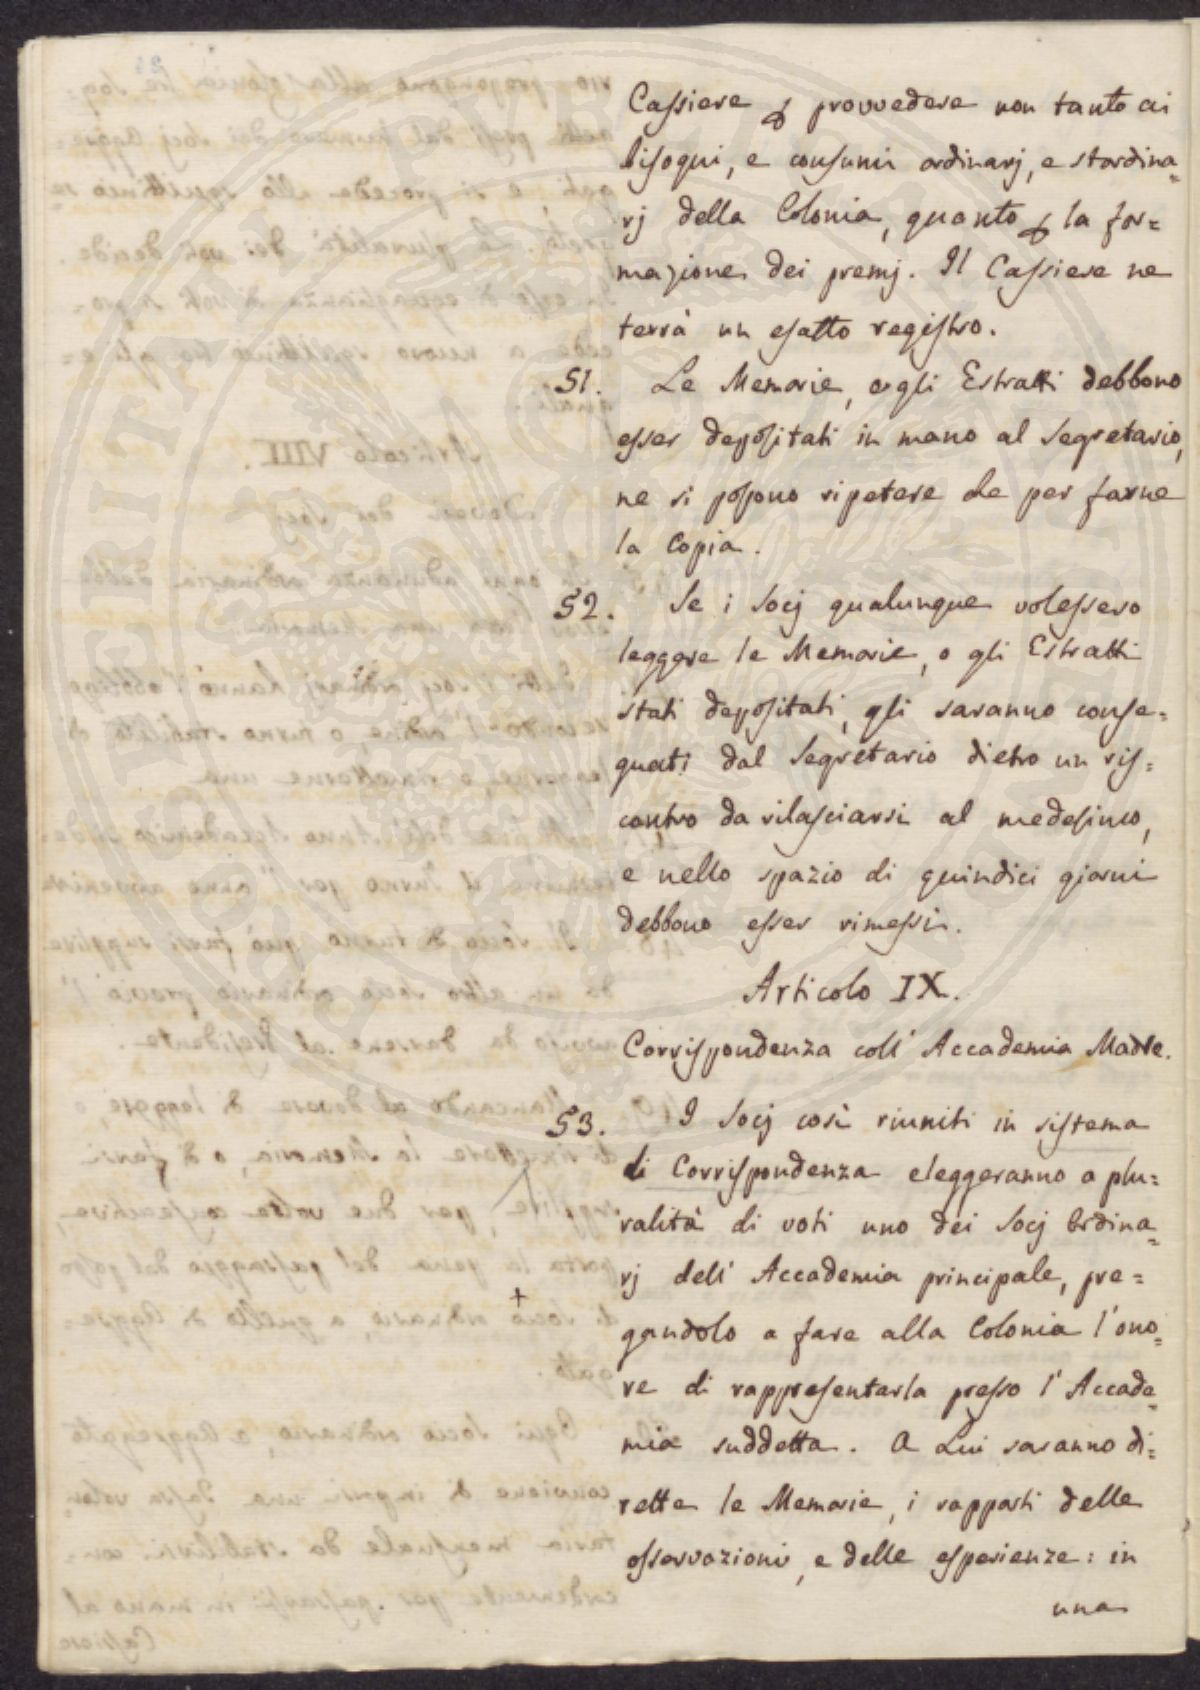 Cassiere p provvedere non tanto ai
bisogni, e consumi ordinarj, e stordina=
rj della Colonia, quanto p la for=
mazione dei premj. Il Cassiere ne
terrà un esatto registro.
51. Le Memorie, o gli Estratti debbono
esser depositati in mano al Segretario,
ne si possono ripetere che per farne
la Copia.
52. Se i Socj qualunque volessero
leggere le Memorie, o gli Estratti
stati depositati, gli saranno conse=
gnati dal Segretario dietro un ris=
contro da rilasciarsi al medesimo,
e nello spazio di quindici giorni
debbono esser rimessi.
Articolo IX.
Corrispondenza coll' Accademia Madre.
53. I Socj così riuniti in sistema
di Corrispondenza eleggeranno a plu=
ralità di voti uno dei Socj Ordina=
rj dell' Accademia principale, pre=
gandolo a fare alla Colonia l'ono=
re di rappresentarla presso l'Accade=
mia suddetta. A Lui saranno di=
rette le Memorie, i rapporti delle
osservazioni, e delle esperienze: in
una